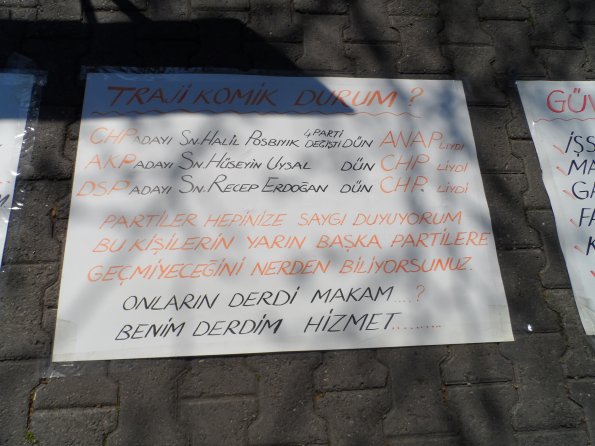 TRAJİ KOMİK DURUM ?
CHP ADAYI SN. HALİL POSBIYIK 4 PARTİ DEĞİŞTİ DÜN ANAP LIYDI
AKP ADAYI SN. HÜSEYİN UYSAL DÜN CHP LİYDİ
DSP ADAYI SN. RECEP ERDOĞAN DÜN CHP. LİYDİ
PARTİLER HEPİNİZE SAYGI DUYUYORUM
BU KİŞİLERİN YARIN BAŞKA PARTİLERE
GEÇMİYECEĞİNİ NERDEN BİLİYORSUNUZ.
ONLARIN DERDİ MAKAM....?
BENİM DERDİM HİZMET.........
GÜV
İŞS
MA
GA
FA
K